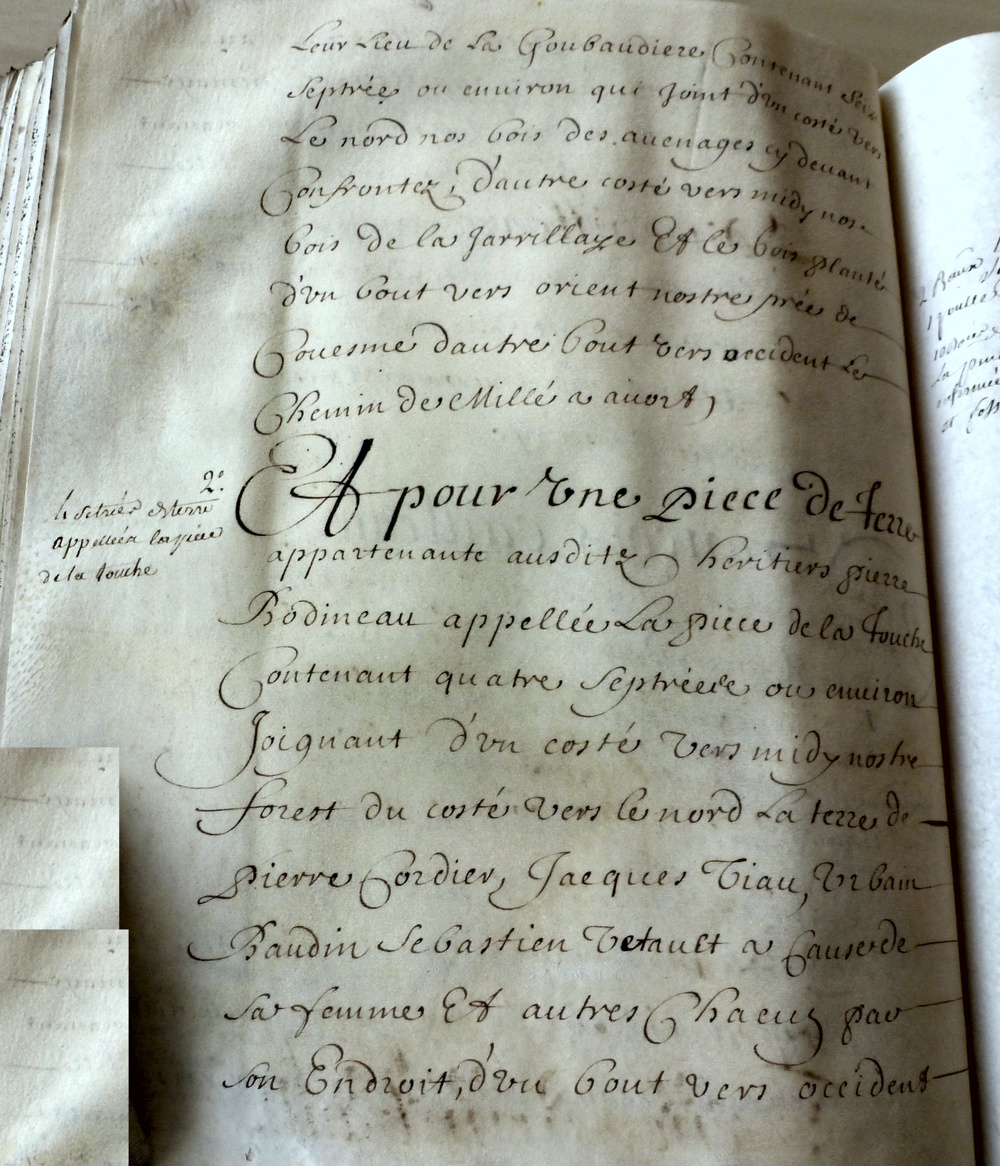 Leur Lieu de La Goubaudiere Contenant Seix
Septrée ou environ qui Joint d'un costé vers
Le nord nos bois des auenages cy devant
Confrontez, d'autre costé vers midy nos
bois de la Jarrillaye Et le bois planté
d'vn bout vers orient nostre prée de
Couesme dautre bout vers occident Le
Chemin de Millé a auort,
Et pour Vne piece De Terre
appartenante ausditz heritiers pierre
Bodineau appellée La piece de la Touche
Contenant quatre Septréede ou environ
Joignant d'vn costé Vers midy nostre
forest du costé Vers le nord La terre de
pierre Cordier, Jacques Viau, Vrbain
Baudin Sebastien Vetault a Cause de
Sa femme Et autres Chacun par
son Endroit, d'vn bout vers occident
2°
appellée la piece
de la touche